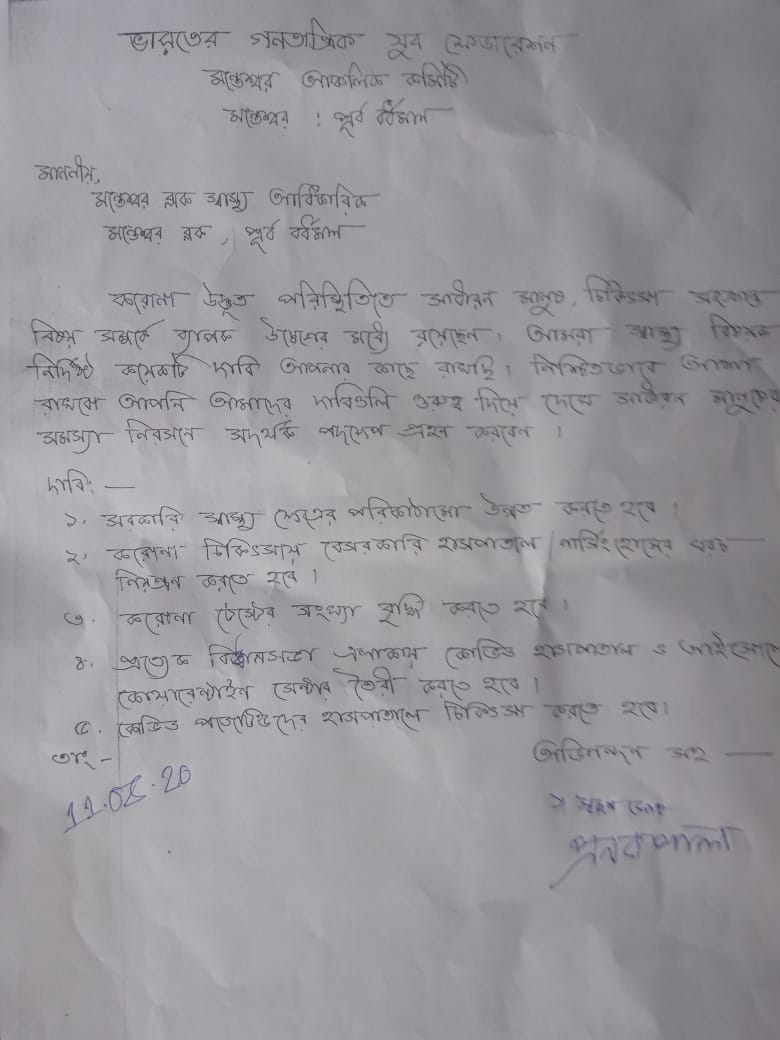 ভারতের গনতান্ত্রিক যুব ফেডারেশন
মন্তেশ্বর আঞ্চলিক কমিটি
মন্তেশ্বর : পূর্ব বর্ধমান
মাননীয়,
মন্তেশ্বর ব্লক স্বাস্থ্য আধিকারিক
মন্তেশ্বর ব্লক, পূর্ব বর্ধমান
করোনা উদ্ভূত পরিস্থিতিতে সাধারন মানুষ, চিকিৎসা সংক্রান্ত
বিষয় সম্পর্কে ব্যাপক উদ্বেগের মধ্যে রয়েছেন। আমরা স্বাস্থ্য বিষয়ক
নির্দিষ্ট কয়েকটি দাবি আপনার কাছে রাখছি। নিশ্চিতভাবে আশা
রাখবো আপনি আমাদের দাবিগুলি গুরুত্ব দিয়ে দেখে সাধারন মানুষের
সমস্যা নিরসনে সদর্থক পদক্ষেপ গ্রহন করবেন ।
দাবি: —
১. সরকারি স্বাস্থ্য ক্ষেত্রের পরিকাঠামো উন্নত করতে হবে।
২. করোনা চিকিৎসায় বেসরকারি হাসপাতাল / নার্সিংহোমের খরচ
নিয়ন্ত্রন করতে হবে ।
৩. করোনা টেস্টের সংখ্যা বৃদ্ধি করতে হবে।
৪. প্রত্যেক বিধানসভা এলাকায় কোভিড হাসপাতাল ও
কোয়ারেন্টাইন সেন্টার তৈরী করতে হবে ।
৫. কোভিড পজেটিভদের হাসপাতালে চিকিৎসা করতে হবে।
তাং - অভিনন্দন সহ —
11.08.20